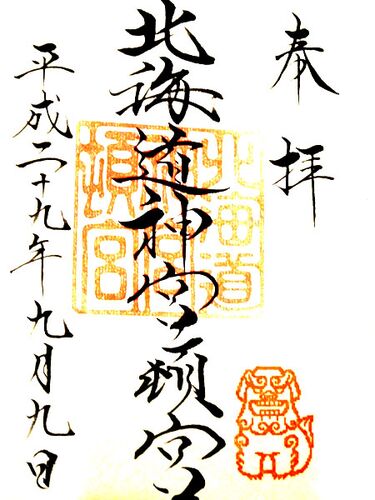 奉拝
北海道神宮頓宮
平成二十九年九月九日
北海道神宮頓宮